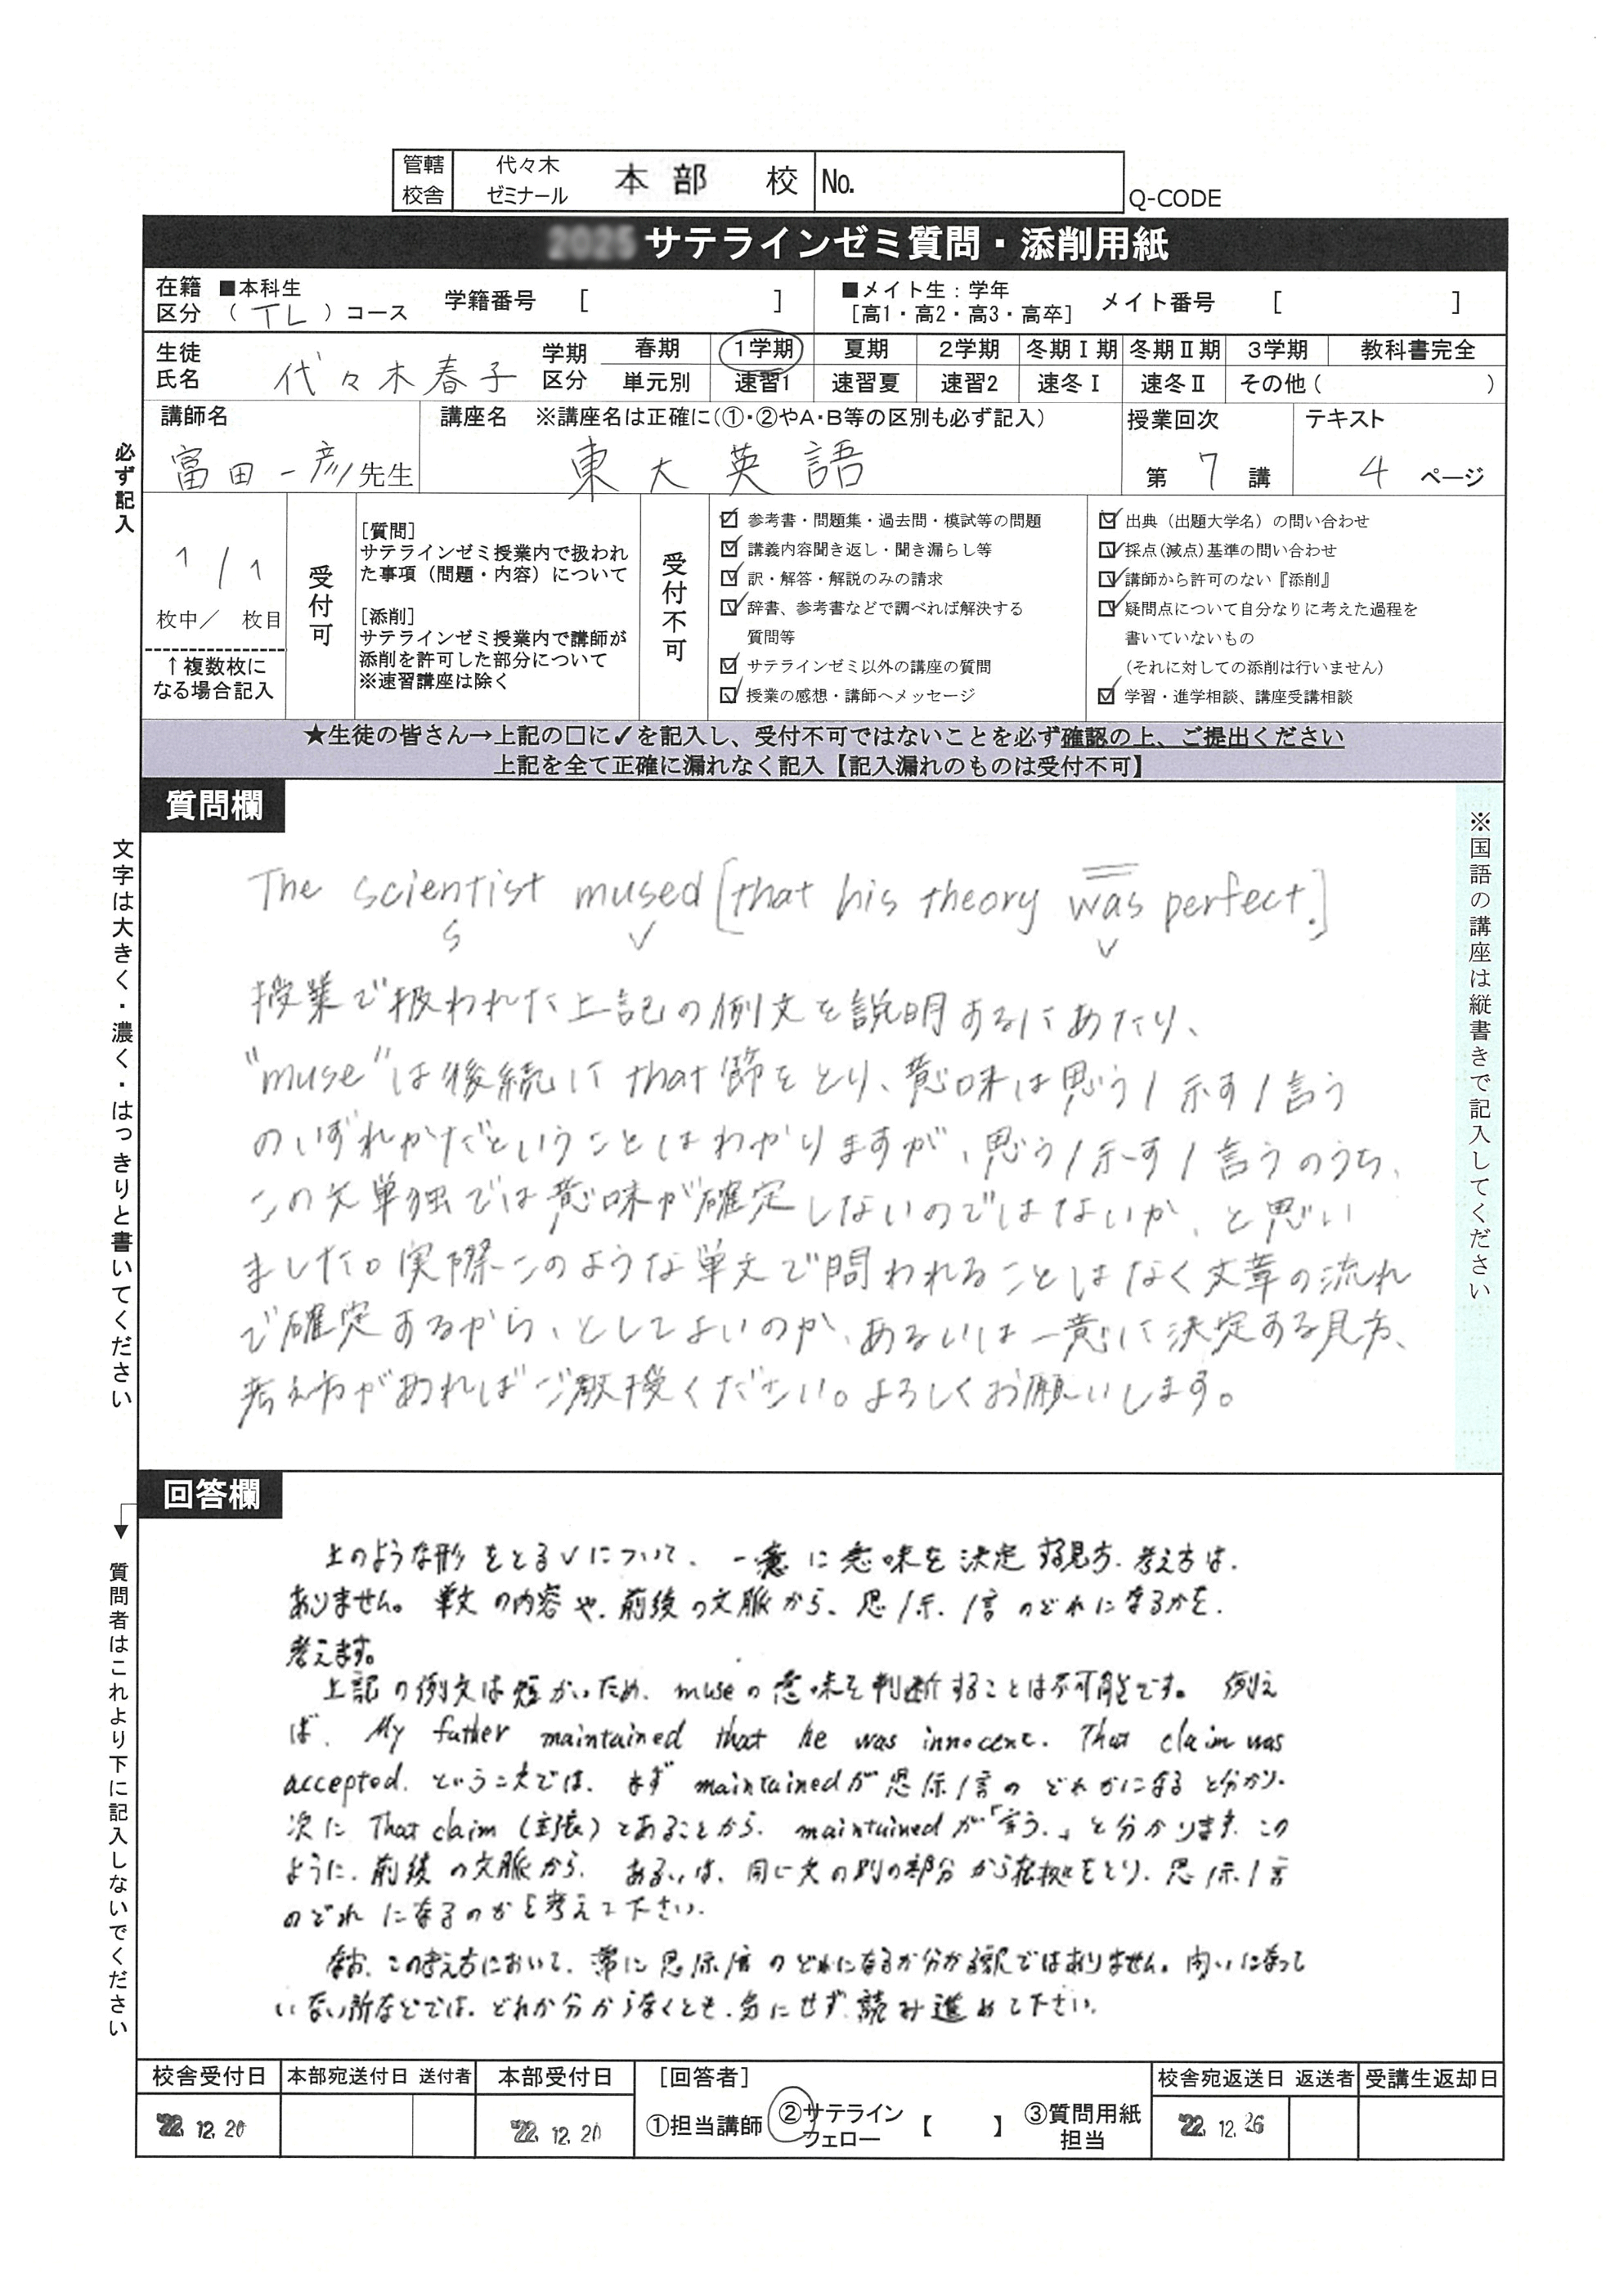 管轄校舎 代々木ゼミナール 本部 校 No.
Q-CODE
サテラインゼミ質問・添削用紙
在籍区分 ■本科生 （TL）コース 学籍番号 [ ] ■メイト生：学年 [高1・高2・高3・高卒] メイト番号 [ ]
生徒氏名 代々木春子 学期区分 春期 1学期 夏期 2学期 冬期Ⅰ期 冬期Ⅱ期 3学期 教科書完全
単元別 速習1 速習夏 速習2 速冬Ⅰ 速冬Ⅱ その他（ ）
講師名 講座名 ※講座名は正確に（①・②やA・B等の区別も必ず記入） 授業回次 テキスト
富田一彦 先生 東大英語 第 7 講 4 ページ
必ず記入
1/1
枚中／ 枚目
↑複数枚に
なる場合記入
受付可
[質問]
サテラインゼミ授業内で扱われ
た事項（問題・内容）について
[添削]
サテラインゼミ授業内で講師が
添削を許可した部分について
※速習講座は除く
受付不可
☑ 参考書・問題集・過去問・模試等の問題
☑ 講義内容聞き返し・聞き漏らし等
☑ 訳・解答・解説のみの請求
☑ 辞書、参考書などで調べれば解決する
質問等
☑ サテラインゼミ以外の講座の質問
☑ 授業の感想・講師へメッセージ
☑ 出典（出題大学名）の問い合わせ
☑ 採点(減点)基準の問い合わせ
☑ 講師から許可のない『添削』
☑ 疑問点について自分なりに考えた過程を
書いていないもの
（それに対しての添削は行いません）
☑ 学習・進学相談、講座受講相談
★生徒の皆さん→上記の□に✓を記入し、受付不可ではないことを必ず確認の上、ご提出ください
上記を全て正確に漏れなく記入【記入漏れのものは受付不可】
質問欄
※国語の講座は縦書きで記入してください
文字は大きく・濃く・はっきりと書いてください
The scientist mused [that his theory was perfect.]
S V V
授業で扱われた上記の例文を説明するにあたり、
"muse"は後続に that 節をとり、意味は思う/示す/言う
のいずれかだということはわかりますが、思う/示す/言うのうち、
この文単独では意味が確定しないのではないか、と思い
ました。実際このような単文で問われることはなく文章の流れ
で確定するから、としてよいのか、あるいは一意に決定する見方、
考え方があればご教授ください。よろしくお願いします。
回答欄
質問者はこれより下に記入しないでください
上のような形をとるVについて、一意に意味を決定する見方、考え方は、
ありません。単文の内容や、前後の文脈から、思/示/言のどれになるかを、
考えます。
上記の例文は短かいため、museの意味を判断することは不可能です。例え
ば、My father maintained that he was innocent. That claim was
accepted. という文では、まず maintainedが思/示/言の どれかになると分かり、
次に That claim（主張）とあることから、maintained が「言う」と分かります。この
ように、前後の文脈から、あるいは、同じ文の別の部分から根拠をとり、思/示/言
のどれになるのかを考えて下さい。
なお、この考え方において、常に思/示/言のどれになるか分かる訳ではありません。問いになって
いない所などでは、どれか分からなくとも、気にせず、読み進めて下さい。
校舎受付日 本部宛送付日 送付者 本部受付日 [回答者] 校舎宛返送日 返送者 受講生返却日
'22.12.20 '22.12.20 ①担当講師 ②サテラインフェロー【 】 ③質問用紙担当 '22.12.26